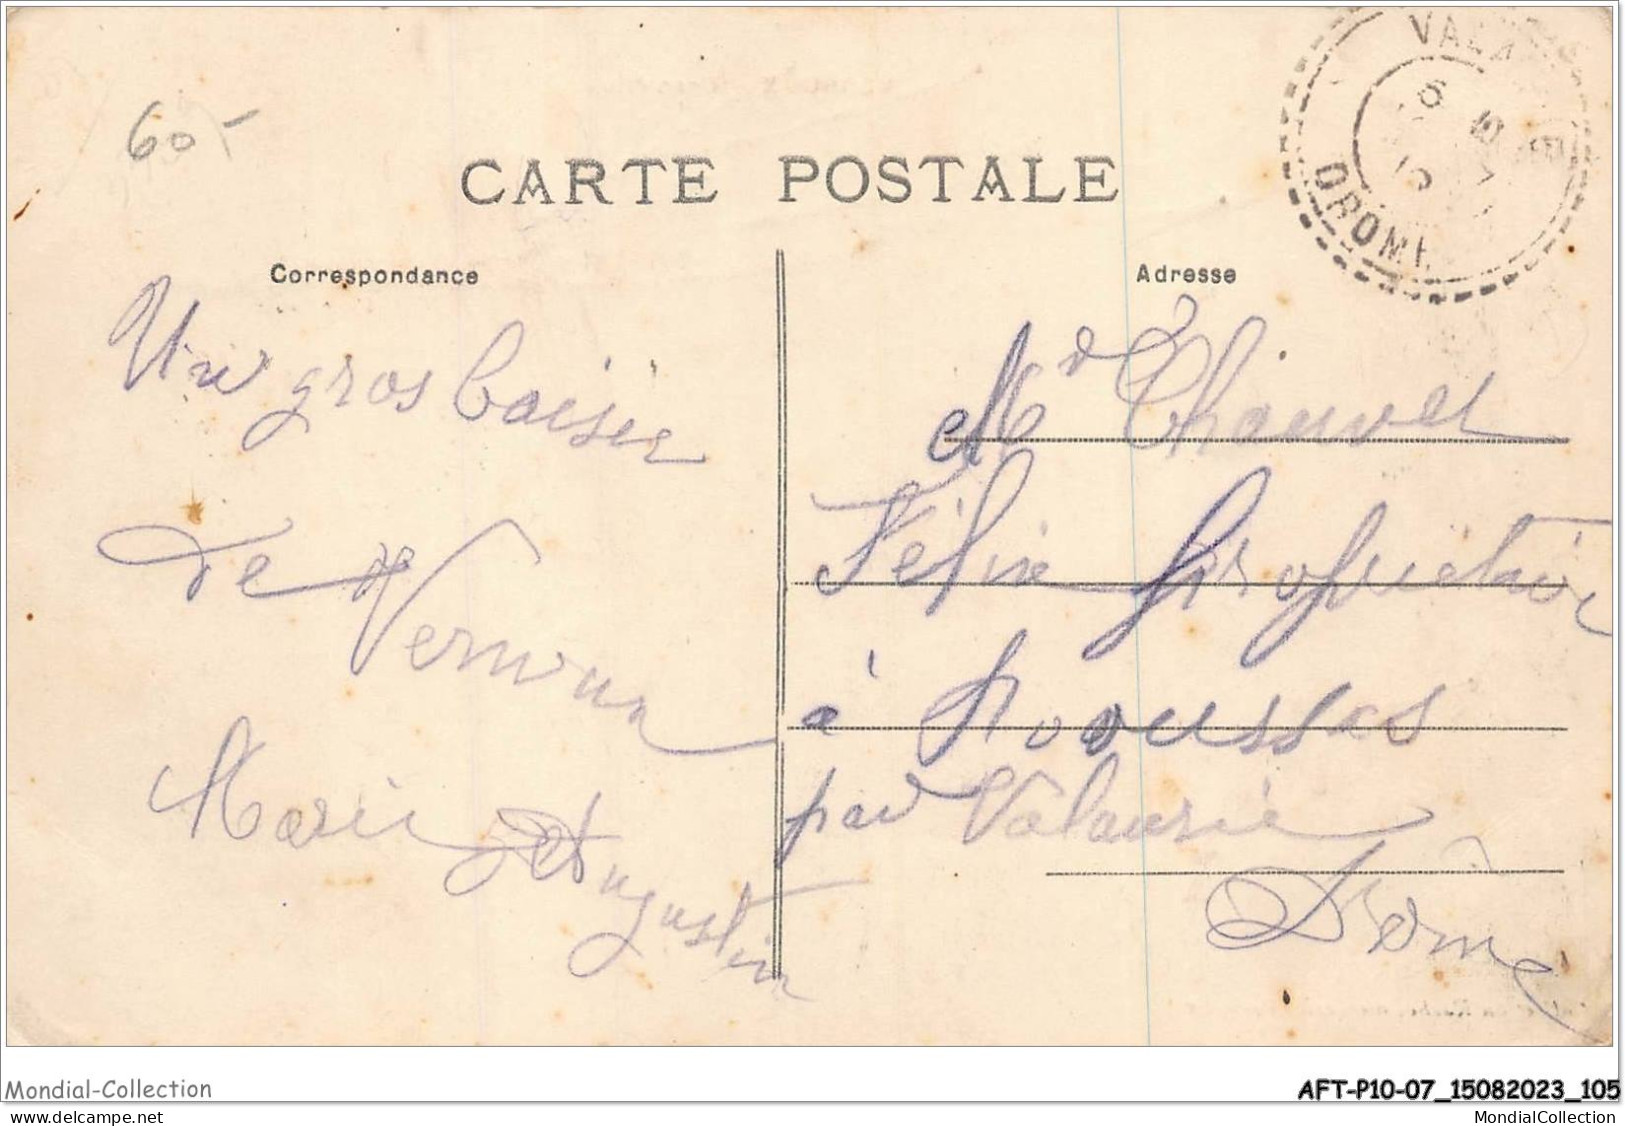 60 -
CARTE POSTALE
VALA
6
10
DROME
Correspondance
Adresse
Un gros baiser
de Vernoux
Marie et Augustin
Mr Chauvet
Félix propriétaire
à Roussas
par Valaurie
Drôme
Mondial-Collection
AFT-P10-07_15082023_105
www.delcampe.net
MondialCollection